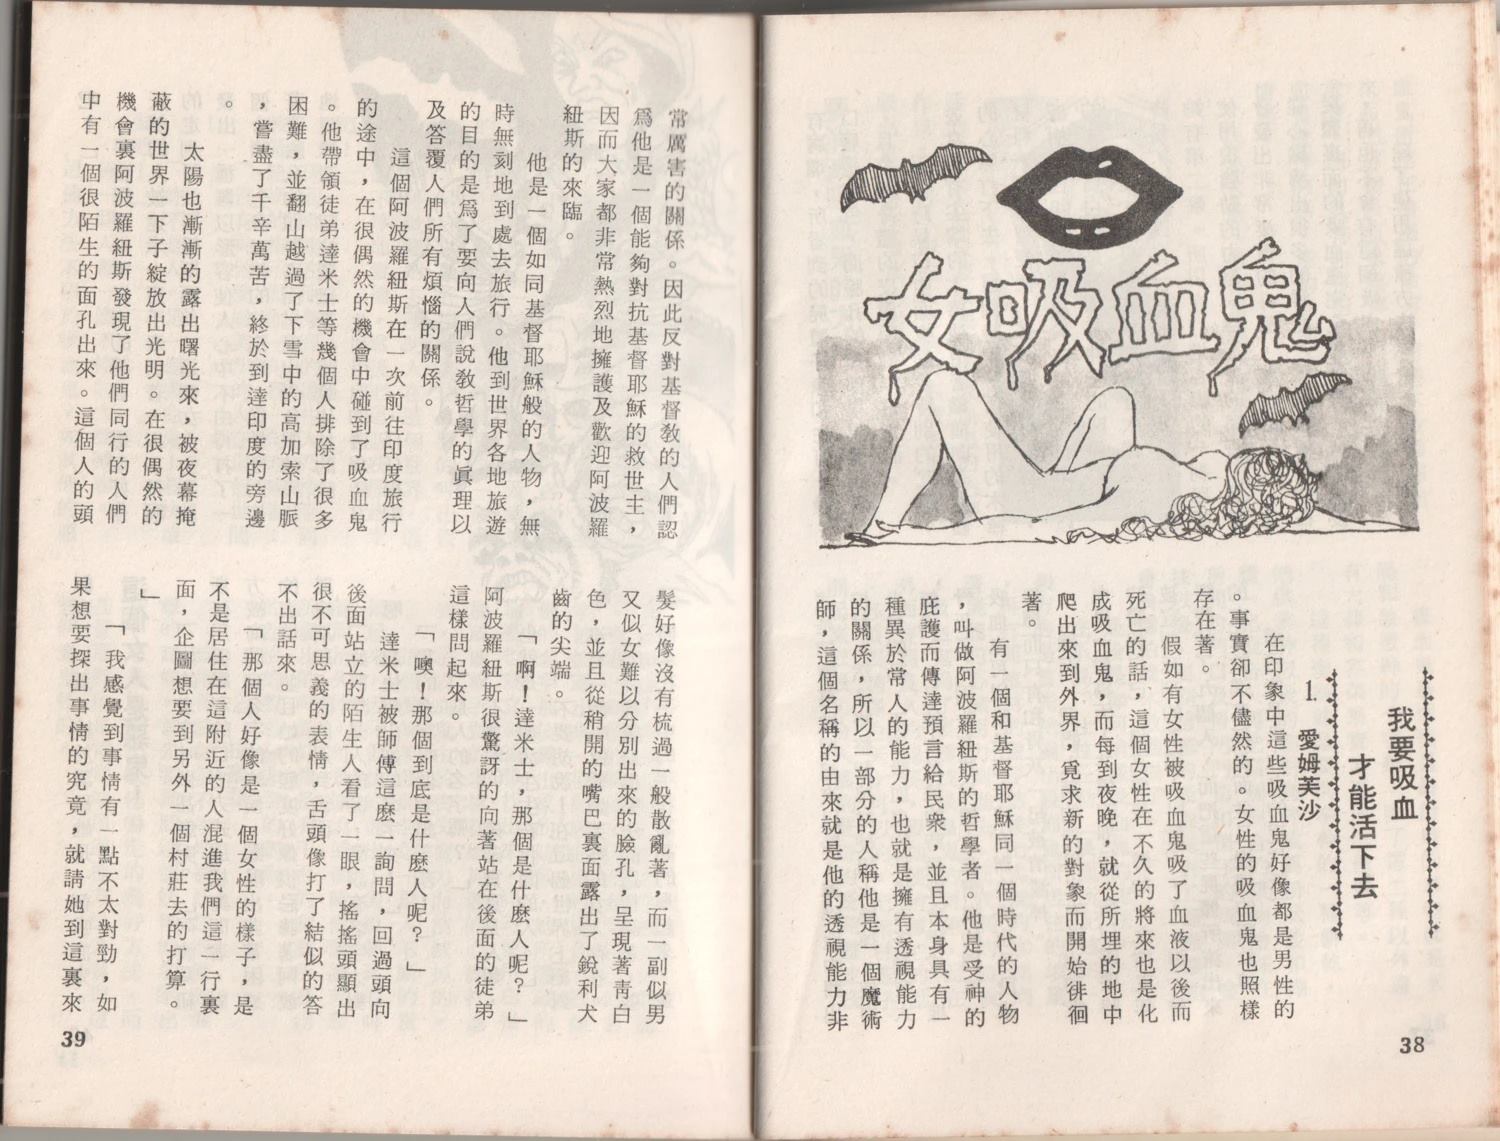 女吸血鬼
我要吸血
才能活下去
1.愛姆芙沙
在印象中這些吸血鬼好像都是男性的
。事實卻不儘然的。女性的吸血鬼也照樣
存在著。
假如有女性被吸血鬼吸了血液以後而
死亡的話，這個女性在不久的將來也是化
成吸血鬼，而每到夜晚，就從所埋的地中
爬出來到外界，覓求新的對象而開始徘徊
著。
有一個和基督耶穌同一個時代的人物
，叫做阿波羅紐斯的哲學者。他是受神的
庇護而傳達預言給民衆，並且本身具有一
種異於常人的能力，也就是擁有透視能力
的關係，所以一部分的人稱他是一個魔術
師，這個名稱的由來就是他的透視能力非
38
常厲害的關係。因此反對基督教的人們認
爲他是一個能夠對抗基督耶穌的救世主，
因而大家都非常熱烈地擁護及歡迎阿波羅
紐斯的來臨。
他是一個如同基督耶穌般的人物，無
時無刻地到處去旅行。他到世界各地旅遊
的目的是爲了要向人們說敎哲學的眞理以
及答覆人們所有煩惱的關係。
這個阿波羅紐斯在一次前往印度旅行
的途中，在很偶然的機會中碰到了吸血鬼
。他帶領徒弟達米士等幾個人排除了很多
困難，並翻山越過了下雪中的高加索山脈
，嘗盡了千辛萬苦，終於到達印度的旁邊
。
太陽也漸漸的露出曙光來，被夜幕掩
蔽的世界一下子綻放出光明。在很偶然的
機會裏阿波羅紐斯發現了他們同行的人們
中有一個很陌生的面孔出來。這個人的頭
髮好像沒有梳過一般散亂著，而一副似男
又似女難以分別出來的臉孔，呈現著靑白
色，並且從稍開的嘴巴裏面露出了銳利犬
齒的尖端。
「啊！達米士，那個是什麼人呢？」
阿波羅紐斯很驚訝的向著站在後面的徒弟
這樣問起來。
「噢！那個到底是什麼人呢？」
達米士被師傅這麼一詢問，回過頭向
後面站立的陌生人看了一眼，搖搖頭顯出
很不可思義的表情，舌頭像打了結似的答
不出話來。
「那個人好像是一個女性的樣子，是
不是居住在這附近的人混進我們這一行裏
面，企圖想要到另外一個村莊去的打算。
」
「我感覺到事情有一點不太對勁，如
果想要探出事情的究竟，就請她到這裏來
39